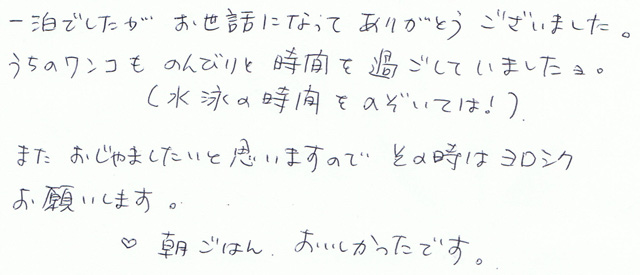 一泊でしたが お世話になって ありがとう ございました。
うちのワンコも のんびりと 時間を 過ごしていましたョ。
(水泳の時間をのぞいては!)
また おじゃましたいと思いますので その時は ヨロシク
お願いします。
♡ 朝ごはん、おいしかったです。